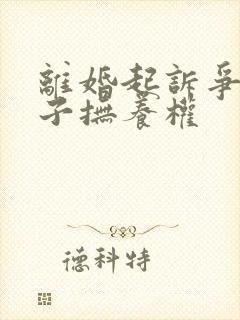 離婚起訴爭
子撫養權
德科特